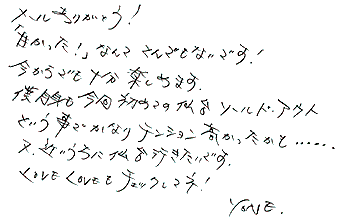 メールありがとう!
「良かった!」なんてとんでもないです!
今からでも十分楽しめます。
僕自身も今回初めての仙台ソールド・アウト
という事でかなりテンション高かったかも……
又、近いうちに仙台行きたいです。
LOVE LOVEもチェックしてネ!
YONE.